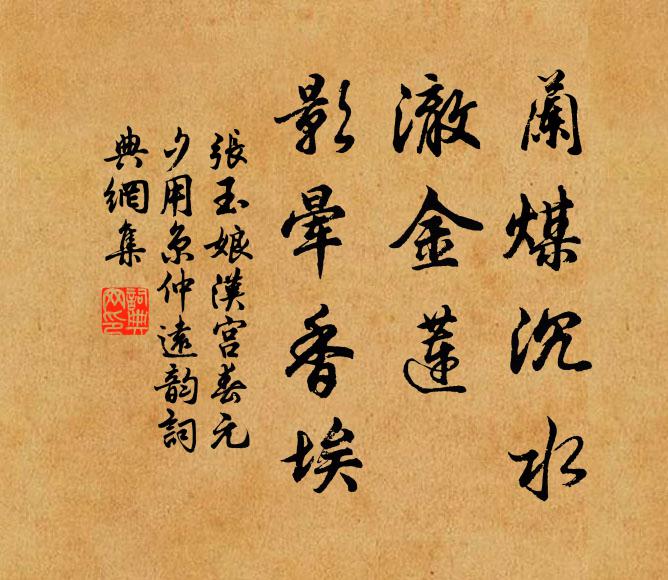 蘭煤沉水
澈金蓮
影暈香埃
張玉娘漢宮春元
夕用京仲遠韵詞
典網集
詞典
网印